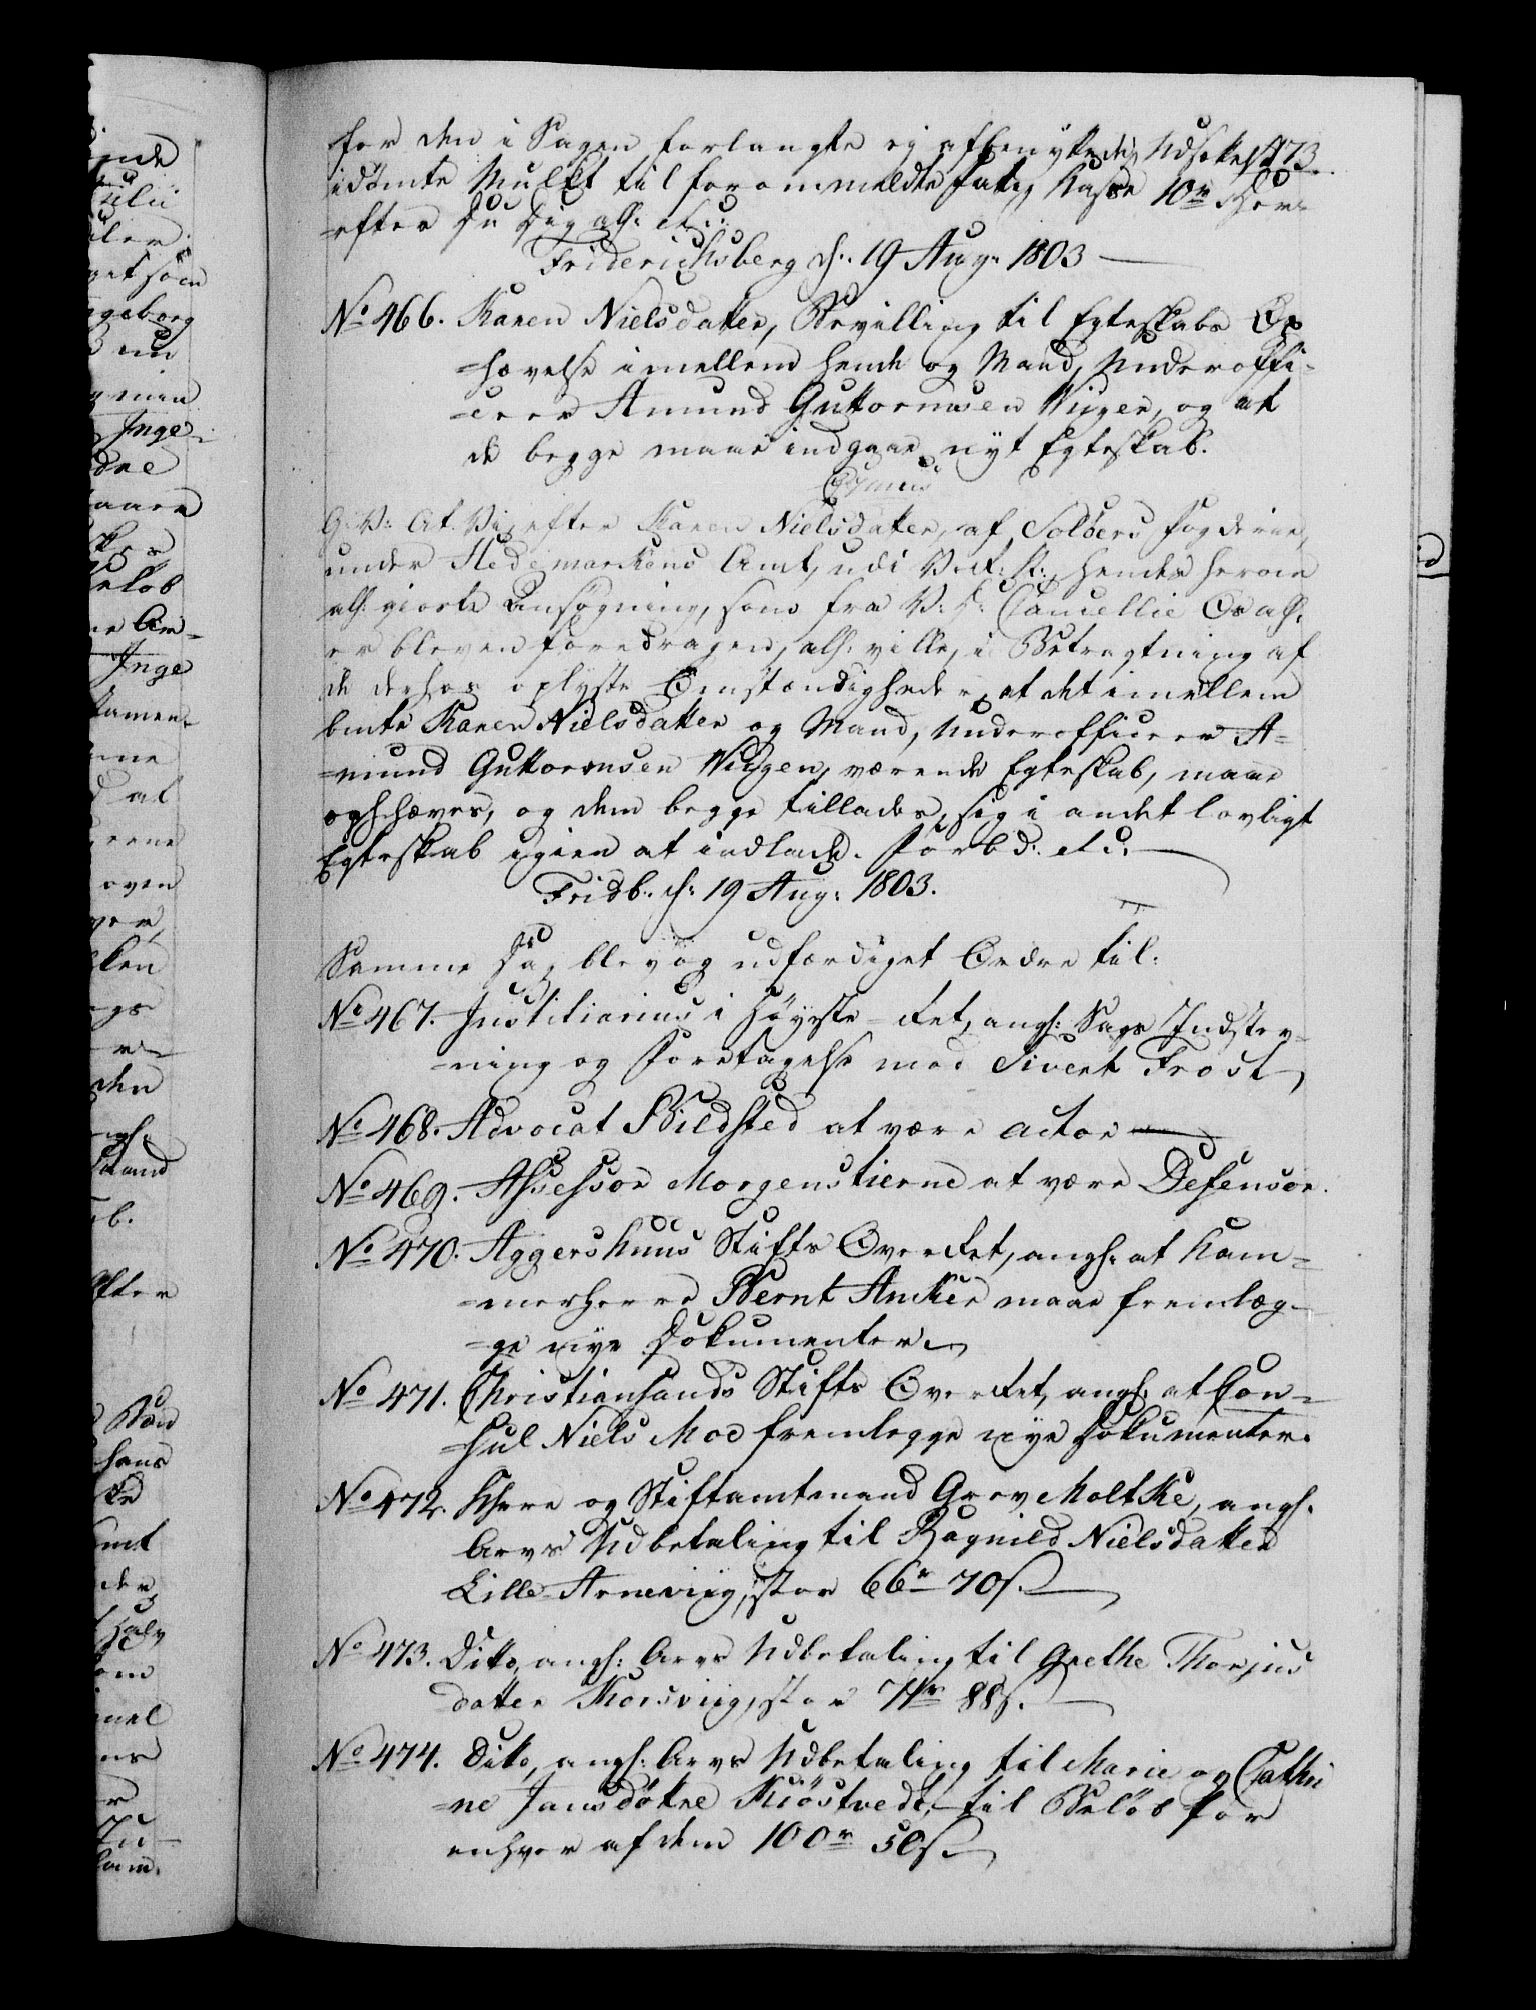 for den i Sagen forlangte og afbenyttede Udsættelse 473.
idømte Mulkt til forommeldte fattig Kasse 10 rd Her-
=efter du dig alh: etc:
Friderichsberg d: 19 Aug: 1803
No 466. Karen Nielsdatter, Bevilling til Egteskabs Op
=hævelse imellem hende og Mand, Underoffi-
=ceer Amund Guttormsen Wigen, og at
de begge maae indgaae nyt Egteskab.
G: V: At Vi, efter Karen Nielsdatter, af Soløers Fogderie,
under Hedemarkens Amt, udi V: R: N:, hendes herom
alh: giorte Ansøgning, som fra V: D: Cancellie Os alh:
er bleven foredragen, alh: ville, i Betragtning af
de derhos oplyste Omstændigheder, at det imellem
bemte Karen Nielsdatter og Mand, Underofficeer A=
=mund Guttormsen Wigen, værende Egteskab, maae
ophæves, og dem begge tillades, sig i andet lovligt
Egteskab igien at indlade. Forbd. etc.
Fridb: d: 19 Aug: 1803.
Samme Dag blev og udfærdiget Ordre til:
No 467. Justitiarius i Høyeste-Ret, angl: Sags Indstev-
=ning og Foretagelse mod Sivert Frost
No 468. Advocat Bildsted at være Actor
No 469. Assessor Morgenstierne at være Defensor.
No 470. Aggershuus Stifts OverRet, angl: at Kam=
=merherre Bernt Anker maae fremlæg-
=ge nye Dokumenter
No 471. Christiansands Stifts OverRet, angl: at Con-
=sul Niels Moe fremlegge nye Dokumenter.
No 472. Khere og Stiftamtmand Grev Moltke, angl:
Arvs Udbetaling til Ragnild Nielsdatter
Lille-Arnevig, stor 66 rd 70 s.
No 473. Dito, angl: Arvs Udbetaling til Grethe Thorjus
datter Korsviig, stor 71 rd 88 s.
No 474. Dito, angl: Arvs Udbetaling til Marie og Cathri
=ne Jansdøttre Kiøstvedt, til Beløb for
enhver af dem 100 rd 50 s